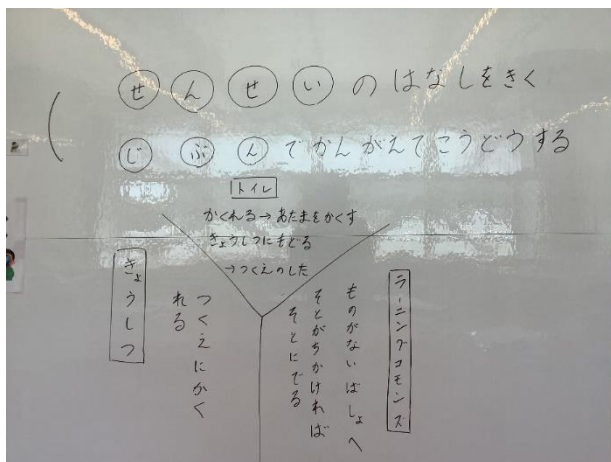 せんせいのはなしをきく
じぶんでかんがえてこうどうする
トイレ
かくれる→あたまをかくす
きょうしつにもどる
→つくえのした
ラーニングコモンズ
ものがないばしょへ
そとがちかければ
そとにでる
きょうしつ
つくえにかく
れる